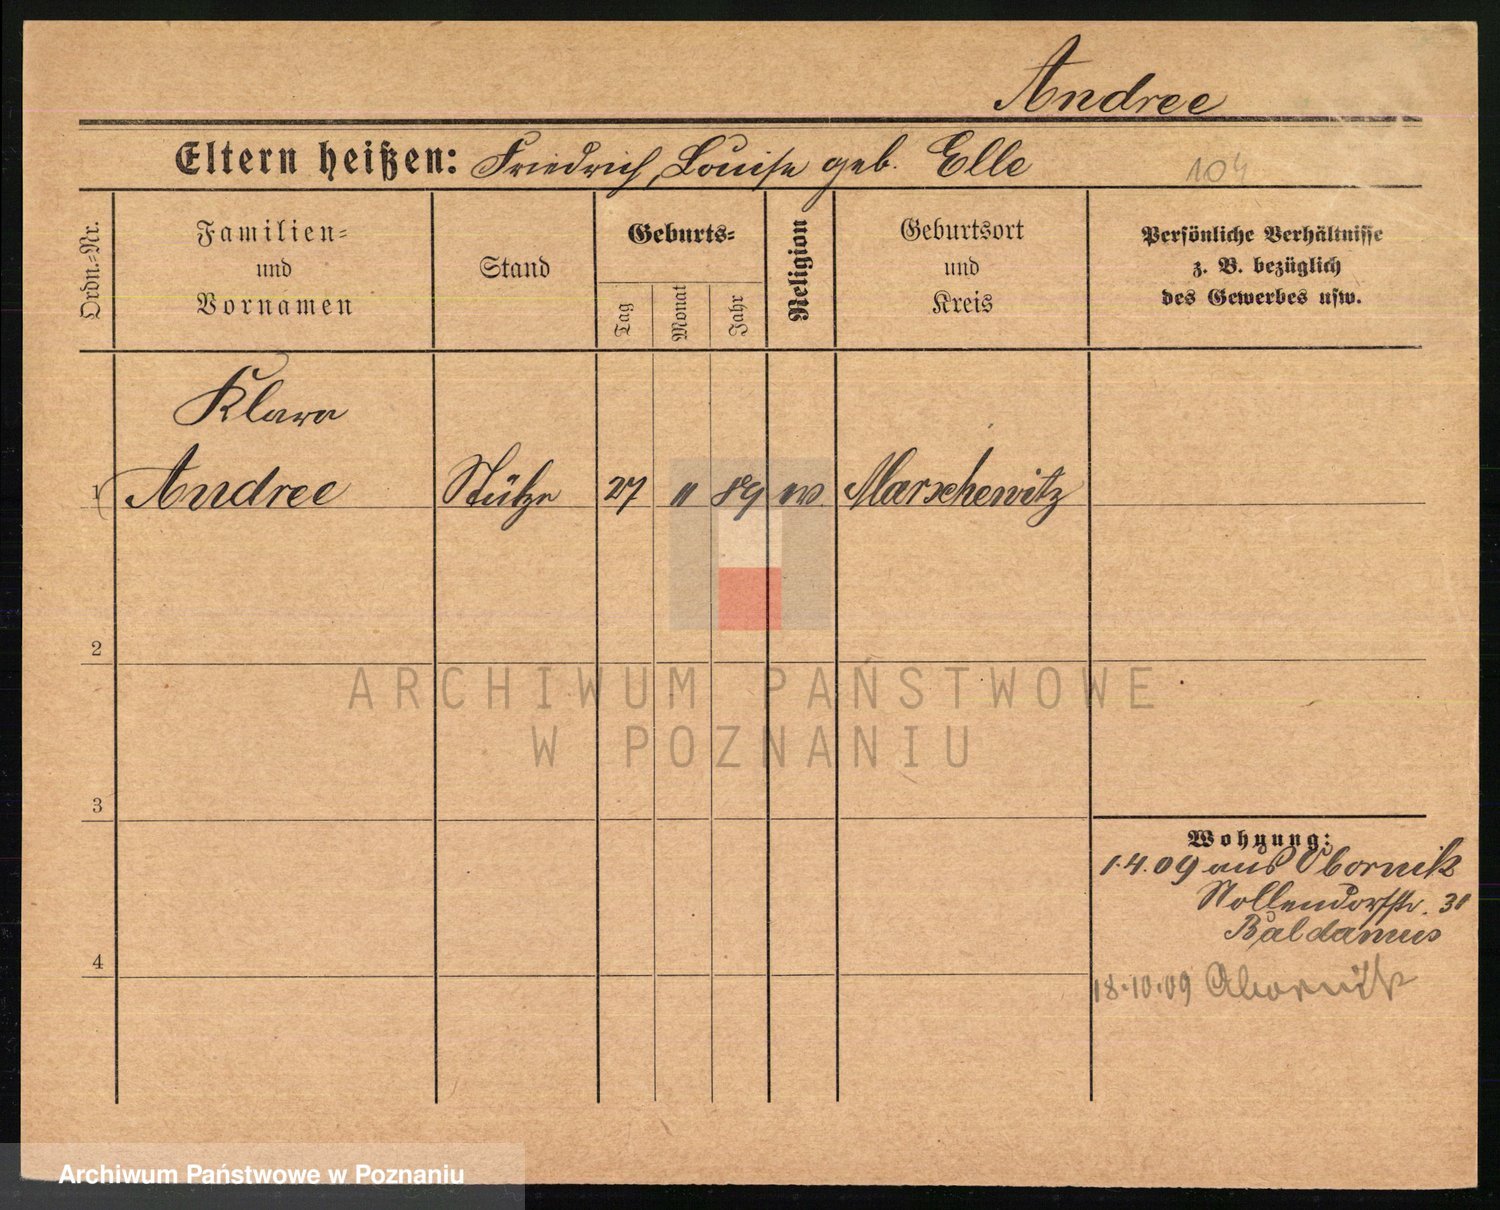 Andree
Eltern heißen: Friedrich, Louise geb. Elle
104
Ordn.-Nr.
Familien-
und
Vornamen
Stand
Geburts-
Tag
Monat
Jahr
Religion
Geburtsort
und
Kreis
Persönliche Verhältnisse
z. B. bezüglich
des Gewerbes usw.
Klara
1 Andree Stütze 27 11 89 ev. Marschewitz
2
3
4
Wohnung:
1.4.09 aus Obornik
Nollendorfstr. 31
Baldamus
18.10.09 Obornik
ARCHIWUM PAŃSTWOWE
W POZNANIU
Archiwum Państwowe w Poznaniu